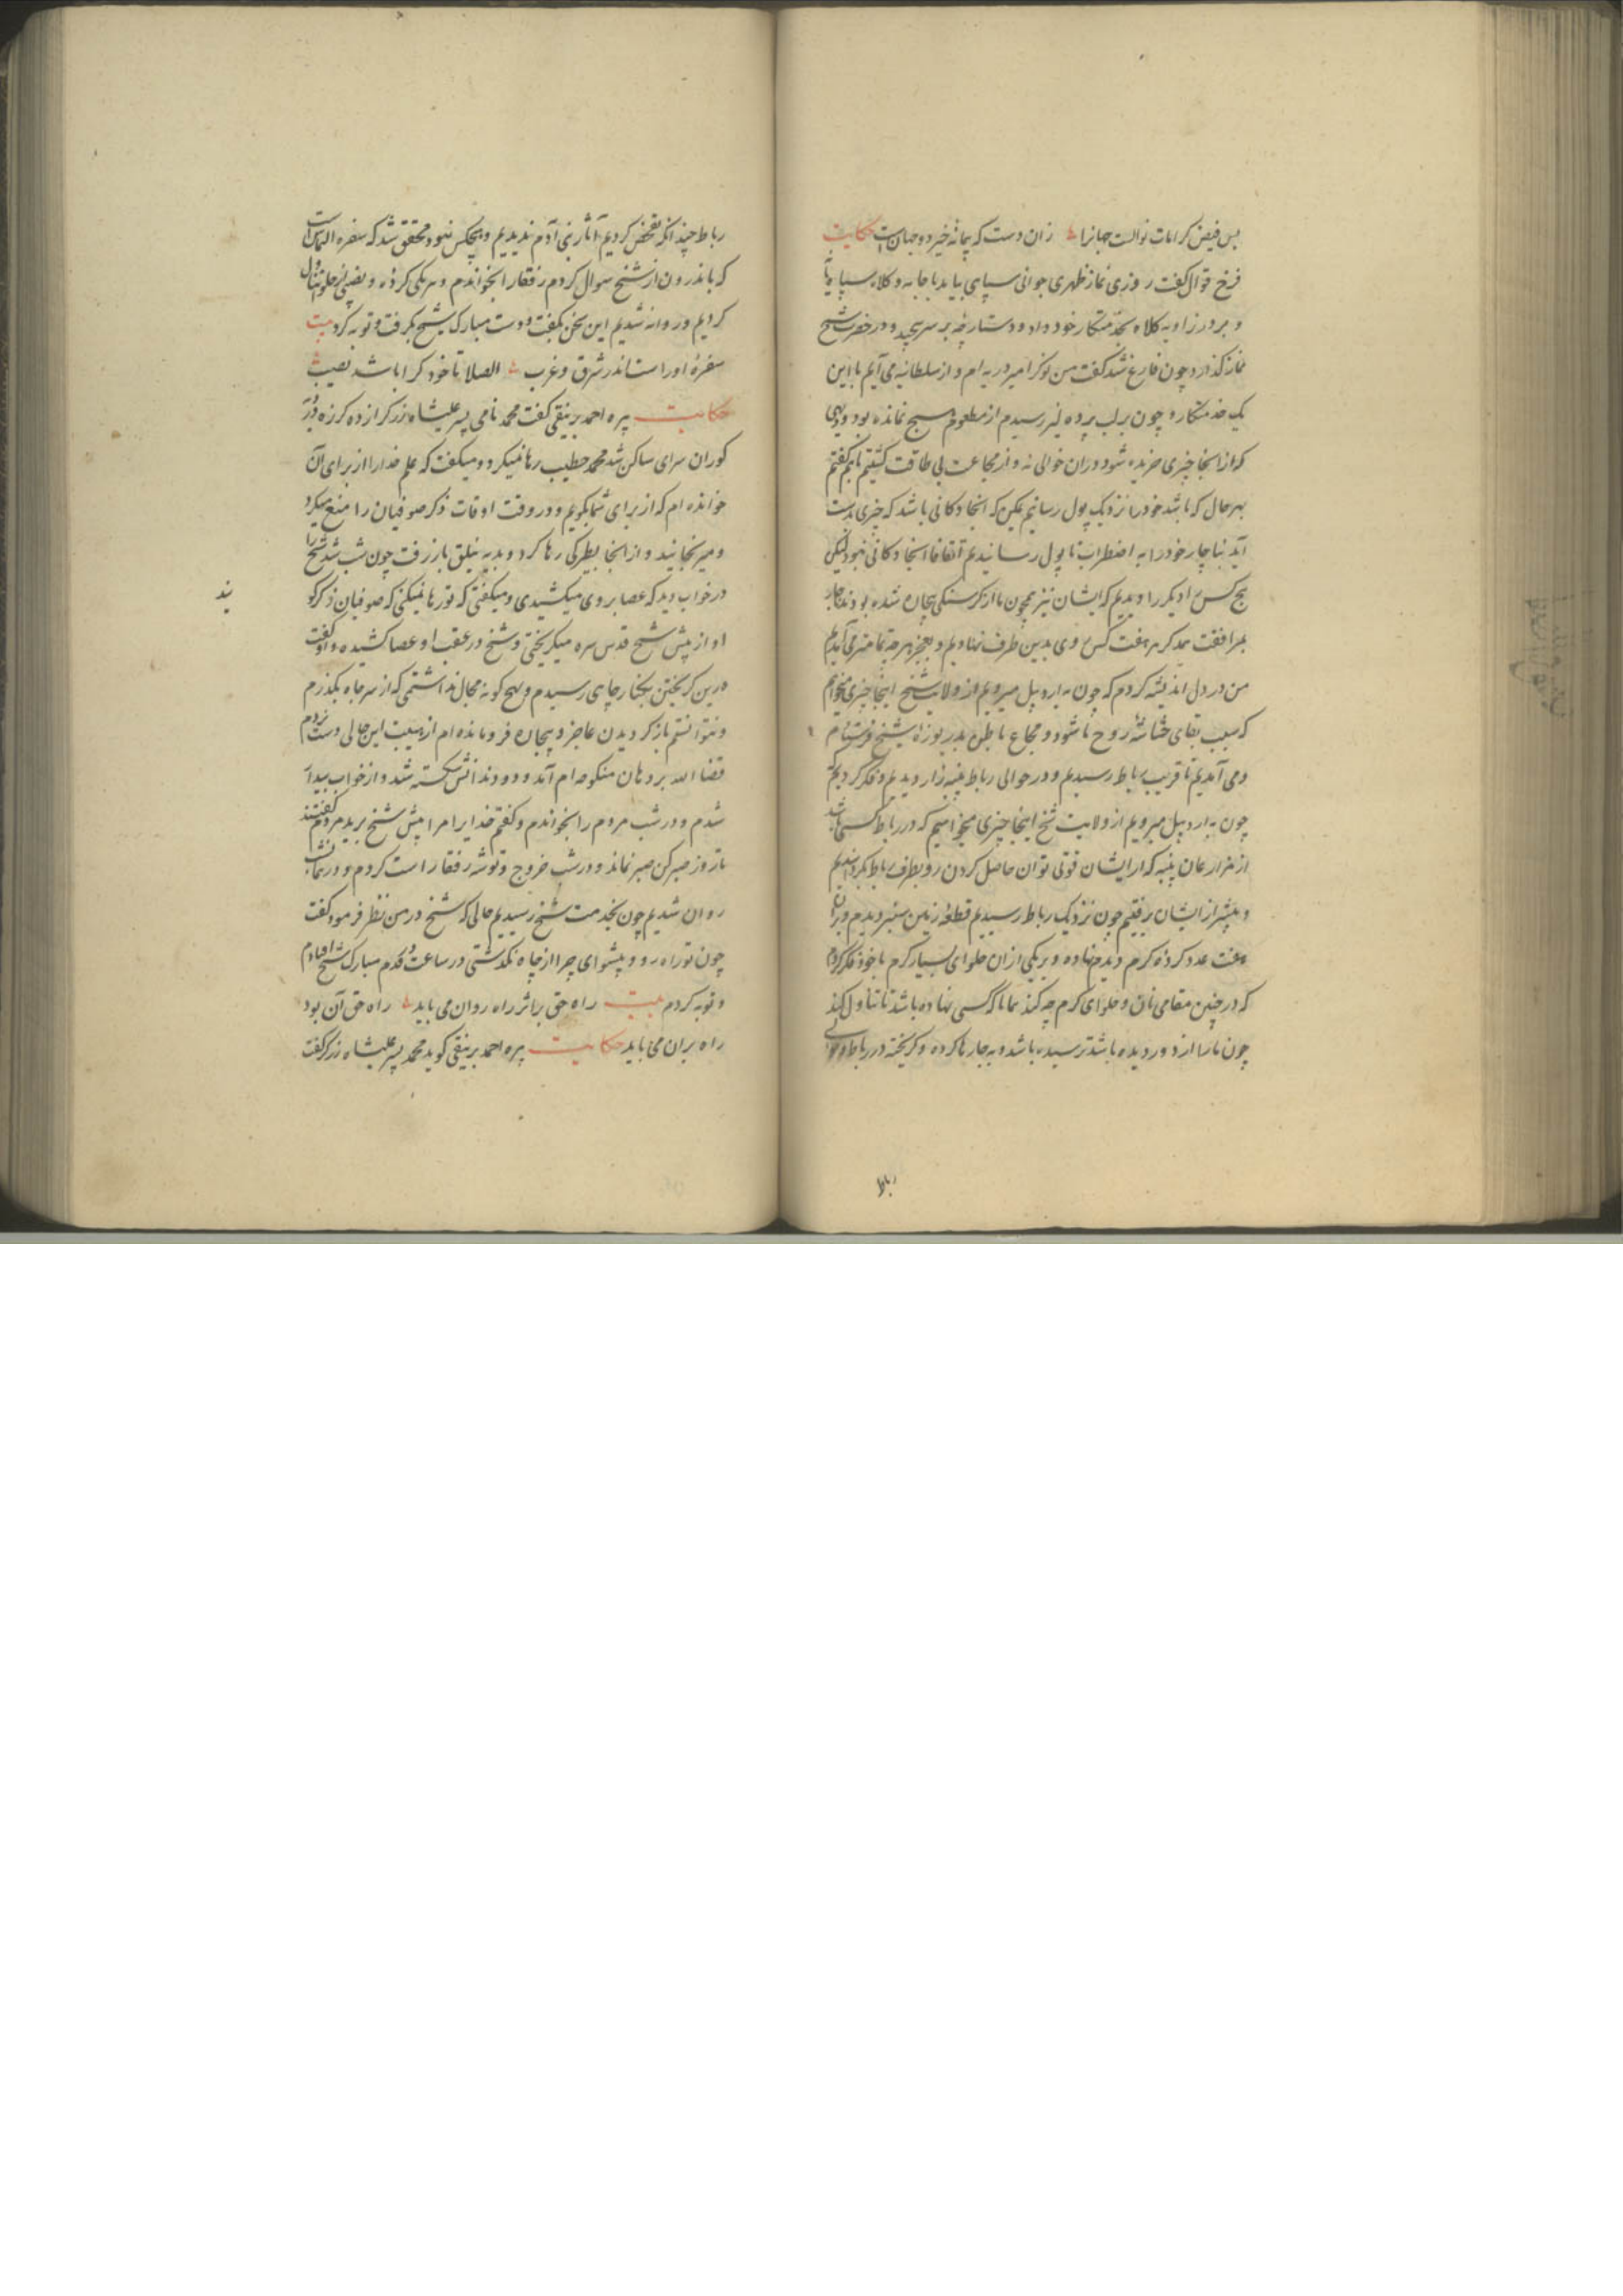 بس فیض کرامات نوالست جهانرا زان دست که پیمانه خیر دو جهان است حکایت
فرخ قوال کفت روزی نماز ظهری جوانی سپاهی بیامد با جامه و کلاه سپاهیانه
و بر در زاویه کلاه بخدمتکار خود داد و دستارچه بر سر پیچید و در حضرت شیخ
نماز کذارد چون فارغ شد کفت من نوکر امیر دربه ام و از سلطانیه می آیم با این
یک خدمتکار و چون برلب پرده لیز رسیدم از مطعوم هیچ نمانده بود و دیهی
که از انجا چیزی خریده شود دران حوالی نه و از مجاعت بی طاقت کشتیم با هم کفتیم
بهر حال که باشد خود را نزدیک پول رسانیم ممکن که انجا دکانی باشد که چیزی بدست
آید بناچار خود را به اضطراب تا پول رسانیدیم اتفاقا انجا دکانی نبود لیکن
پنج کس دیکر را دیدیم که ایشان نیز همچون ما از کرسنکی بیچاره شده بودند ناچار
بمرافقت همدکر هر هفت کس روی بدین طرف نهادیم و بعجز هر چه تمامتر می آمدیم
من در دل اندیشه کردم که چون به اردبیل میرویم از ولایت شیخ اینجا چیزی میخواهم
که سبب بقای حشاشه روح ما شود و مجاع باطن بدریوزه شیخ فرستادم
و می آمدیم تا قریب رباط رسیدیم و در حوالی رباط پنبه زار دیدیم و فکر کردیم
چون به اردبیل میرویم از ولایت شیخ اینجا چیزی میخواهیم که در رباط کسی باشد
از مزارعان پنبه که از ایشان قوتی توان حاصل کردن رو بطرف رباط بکردانیدیم
و پیشتر از ایشان رفتیم چون نزدیک رباط رسیدیم قطعه زمین سبز دیدم و بران
هفت عدد کرده کرم دیدم نهاده و بر یکی ازان حلوای بسیار کرم با خود فکر کردم
که در چنین مقامی نان و حلوای کرم چه کند همانا که کسی نهاده باشد تا تناول کند
چون ما را از دور دیده باشد ترسیده باشد و به جا رها کرده و کریخته در رباط و حوالی
رباط
رباط چندانکه تفحص کردیم آثار بنی آدم ندیدیم و هیچکس نبود محقق شد که سفره التماس است
که باندرون از شیخ سوال کردم رفقا را بخواندم و هر یکی کرده و بعضی از حلوا تناول
کردیم و روانه شدیم این سخن بکفت و دست مبارک شیخ بکرفت و توبه کرد بیت
سفره اوراست اندر شرق و غرب الصلا تا خود کرا باشد نصیب
حکایت پیره احمد برنیقی کفت محمد نامی پسر علیشاه زرکر از ده کرزه در
کوران سرای ساکن شد محمد خطیب رها نمیکرد و میکفت که علم خدا را از برای آن
خوانده ام که از برای شما بکویم و در وقت اوقات ذکر صوفیان را منع میکرد
و میرنجانید و از انجا بطرکی رها کرد و بدیه نیلق باز رفت چون شب شد شیخ را
در خواب دید که عصا بر وی میکشیدی و میکفتی که تو رها نمیکنی که صوفیان ذکر کو
یند
او از پیش شیخ قدس سره میکریختی و شیخ در عقب او عصا کشیده و او کفت
درین کریختن بکنار چاهی رسیدم و هیچ کونه مجال نداشتم که از سر چاه بکذرم
و نتوانستم باز کردیدن عاجز و بیچاره فرومانده ام از هیبت این حالی دست زدم
قضا الله بر دهان منکوحه ام آمد و دو دندانش شکسته شد و از خواب بیدار
شدم و در شب مردم را بخواندم و کفتم خدایرا مرا پیش شیخ برید مردم کفتند
تا روز صبر کن صبر نماند و در شب خروج و توشه رفقا راست کردم و در همان شب
روان شدیم چون بخدمت شیخ رسیدیم حالی که شیخ در من نظر فرمود کفت
چون تو راه رو و پیشوای چرا از چاه نکذشتی در ساعت در قدم مبارک شیخ افتادم
و توبه کردم بیت راه حق بر اثر راه روان می باید راه حق آن بود
راه بران می باید حکایت پیره احمد برنیقی کوید محمد پسر علیشاه زرکر کفت